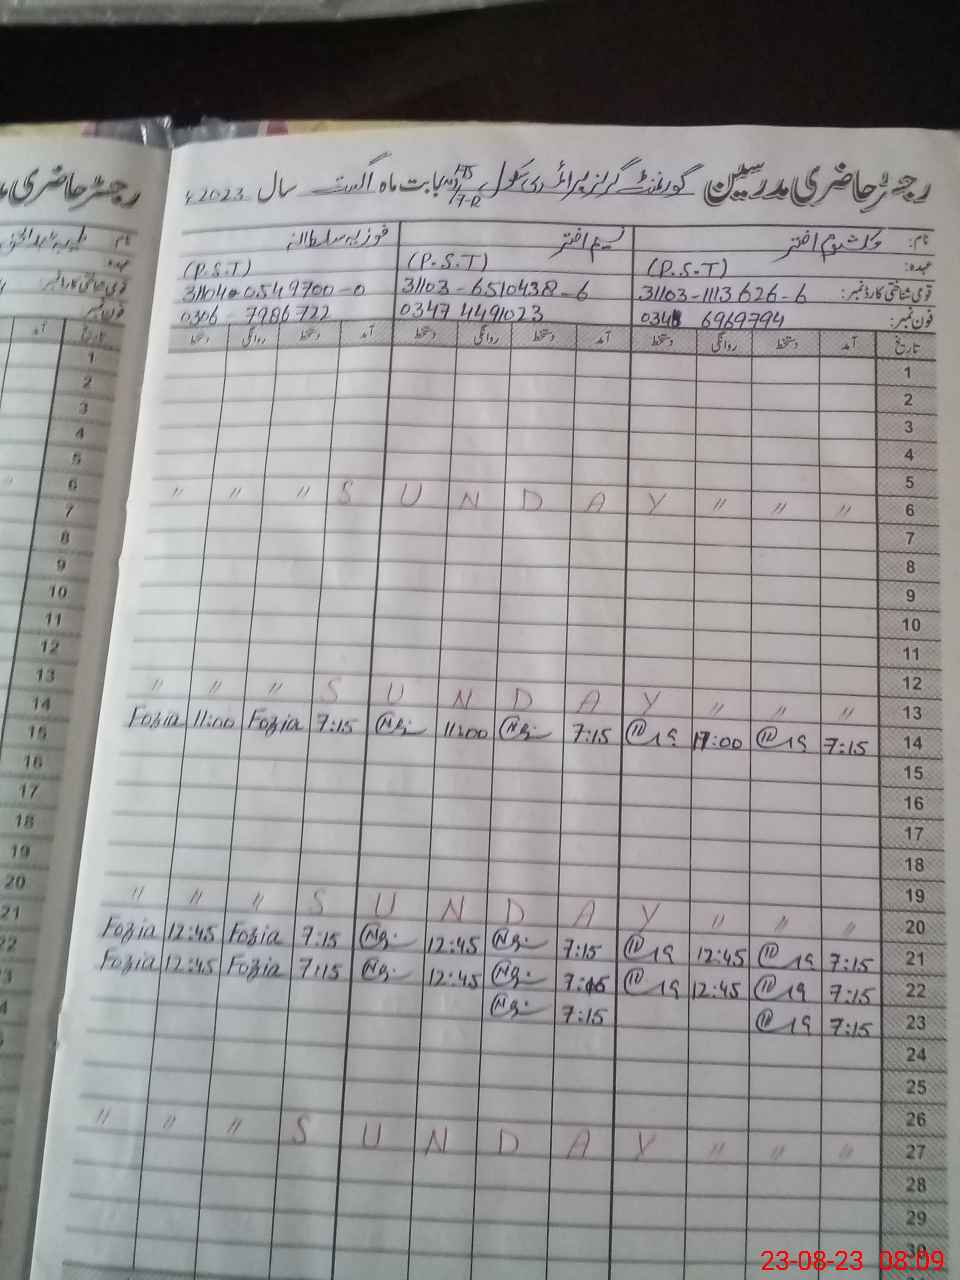 رجسٹر حاضری مدرسین گورنمنٹ گرلز پرائمری سکول 175/7-R بابت ماہ اگست سال 2023ء
نام: کلثوم اختر نسیم اختر فوزیہ سلطانہ
عہدہ: (P.S.T) (P.S.T) (P.S.T)
قومی شناختی کارڈ نمبر: 31103-1113626-6 31103-6510438-6 31104-0549700-0
فون نمبر: 6969794 0347 4491023 0306-7986722
تاریخ آمد دستخط روانگی دستخط آمد دستخط روانگی دستخط آمد دستخط روانگی دستخط
1
2
3
4
5
" " " S U N D A Y " " " 6
7
8
9
10
11
12
" " " S U N D A Y " " " 13
Fozia 11:00 Fozia 7:15 11:00 7:15 11:00 7:15 14
15
16
17
18
19
" " " S U N D A Y " " " 20
Fozia 12:45 Fozia 7:15 12:45 7:15 12:45 7:15 21
Fozia 12:45 Fozia 7:15 12:45 7:15 12:45 7:15 22
7:15 7:15 23
24
25
26
" " " S U N D A Y " " " 27
28
29
30
رجسٹر حاضری
نام:
عہدہ:
قومی شناختی کارڈ نمبر:
فون نمبر
تاریخ آمد
1
2
3
4
5
6
7
8
9
10
11
12
13
14
15
16
17
18
19
20
21
22
23-08-23 08:09